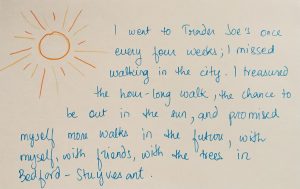 I went to Trader Joe's once
every four weeks; I missed
walking in the city. I treasured
the hour-long walk, the chance to
be out in the sun, and promised
myself more walks in the future, with
myself, with friends, with the trees in
Bedford-Stuyvesant.